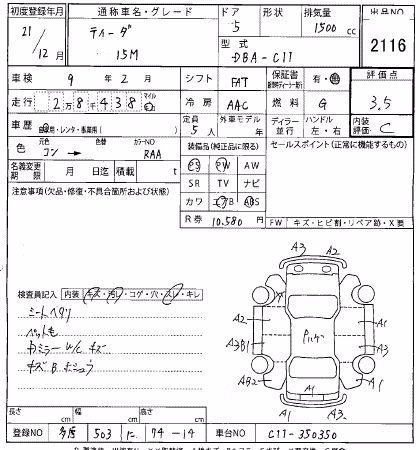 初度登録年月 通称車名・グレード ドア 形状 排気量 出品NO
21/12月 ティーダ 15M 5 1500cc 2116
型式 DBA-C11
車検 9年2月 シフト FAT 保証書 有・無 評価点
走行 2万8千438 マイル km 冷房 AAC 燃料 G 3.5
車歴 自家用・レンタ・事業用( ) 定員 5人 外車モデル 年 ディーラー 並行 ハンドル 左・右 内装評価 C
色 コン → 色替 カラーNO RAA 装備品(純正品に限る) セールスポイント(正常に機能するもの)
名義変更期限 月 日迄 積載 t
PS PW AW
注意事項(欠品・修復・不具合箇所および状態)
SR TV ナビ
カワ エアB ABS
R券 10,580円 FW キズ・ヒビ割・リペア跡・X要
検査員記入 内装 キズ・汚レ・コゲ・穴・スレ・キレ
シートヘタリ
ペット毛
キズBボシュウ
A3 A2
A2 A1
A3B1 A3
AB2 A1
A1
A1 A3
長さ cm 幅 cm 高さ cm
登録NO 多摩 503 に 74-14 車台NO C11-350350